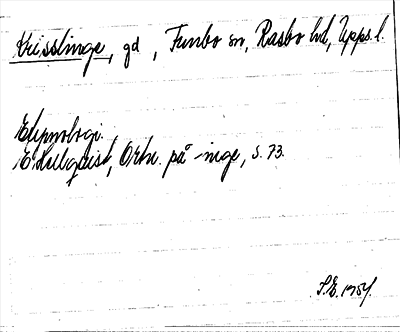 Krisslinge, gd, Funbo sn, Rasbo hd, Upps. l.
Etymologi.
E Hellquist, Ortn. på -inge, s. 73.
S.E. 1954.